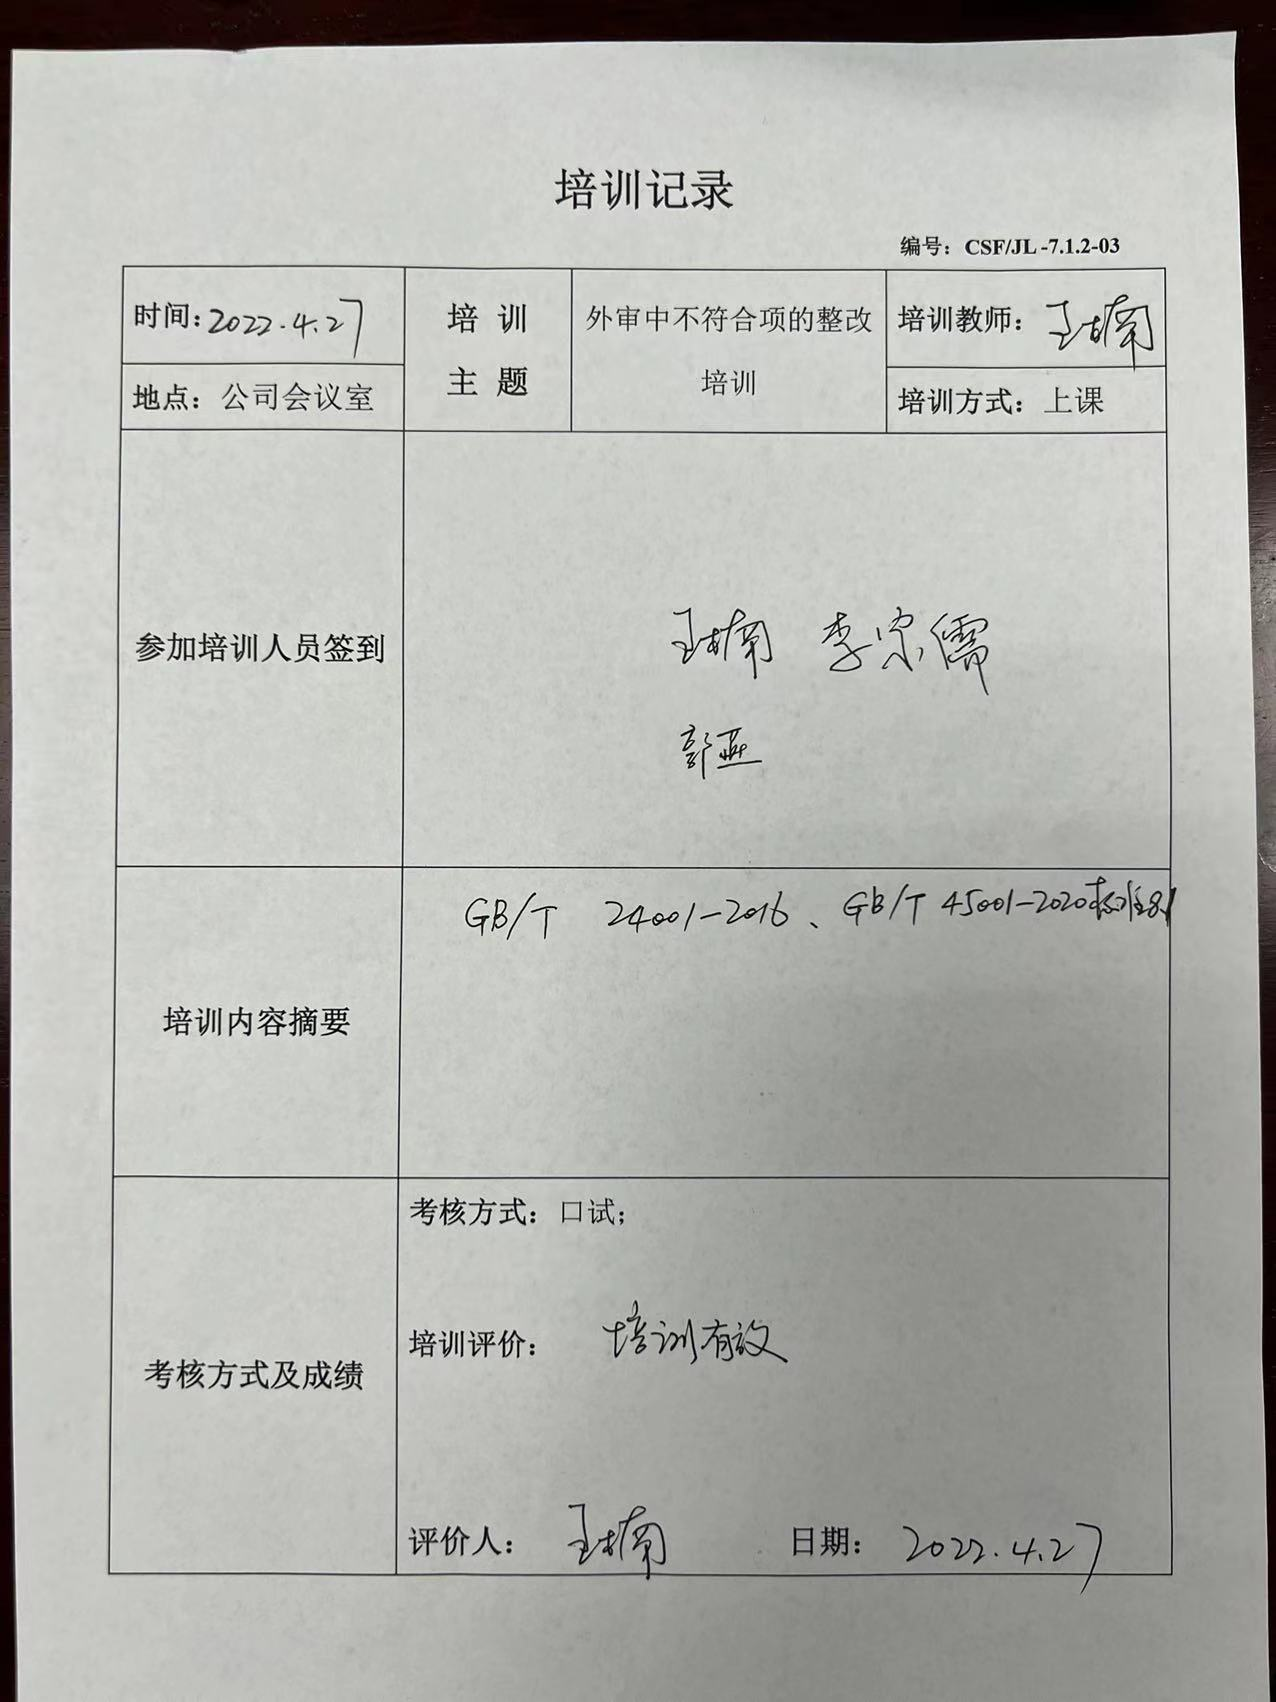 培训记录
编号：CSF/JL -7.1.2-03
时间：2022.4.27
地点：公司会议室
培 训
主 题
外审中不符合项的整改
培训
培训教师：王楠
培训方式：上课
参加培训人员签到
王楠 李宗儒
郭燕
培训内容摘要
GB/T 24001-2016、GB/T 45001-2020标准
考核方式及成绩
考核方式：口试；
培训评价： 培训有效
评价人： 王楠 日期： 2022.4.27